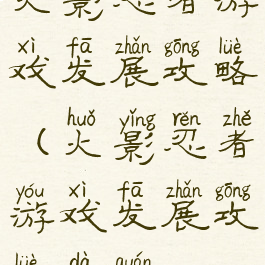 火影忍者游
xì fā zhǎn gōng lüè
戏发展攻略
huǒ yǐng rěn zhě
（火影忍者
yóu xì fā zhǎn gōng
游戏发展攻
lüè dà quán